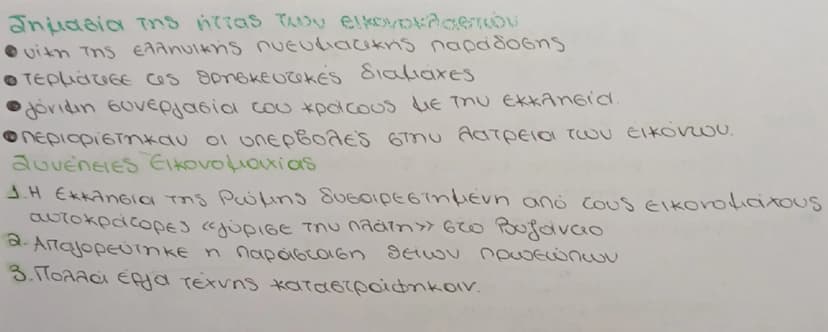 Σημασία της ήττας των εικονοκλαστών
• νίκη της ελληνικής πνευματικής παράδοσης
• τερμάτισε τις θρησκευτικές διαμάχες
• μόνιμη συνεργασία του κράτους με την εκκλησία.
• περιορίστηκαν οι υπερβολές στην λατρεία των εικόνων.
Συνέπειες Εικονομαχίας
1. Η Εκκλησία της Ρώμης δυσαρεστημένη από τους εικονομάχους
αυτοκράτορες «γύρισε την πλάτη» στο Βυζάντιο
2. Απαγορεύτηκε η παράσταση θείων προσώπων
3. Πολλά έργα τέχνης καταστράφηκαν.